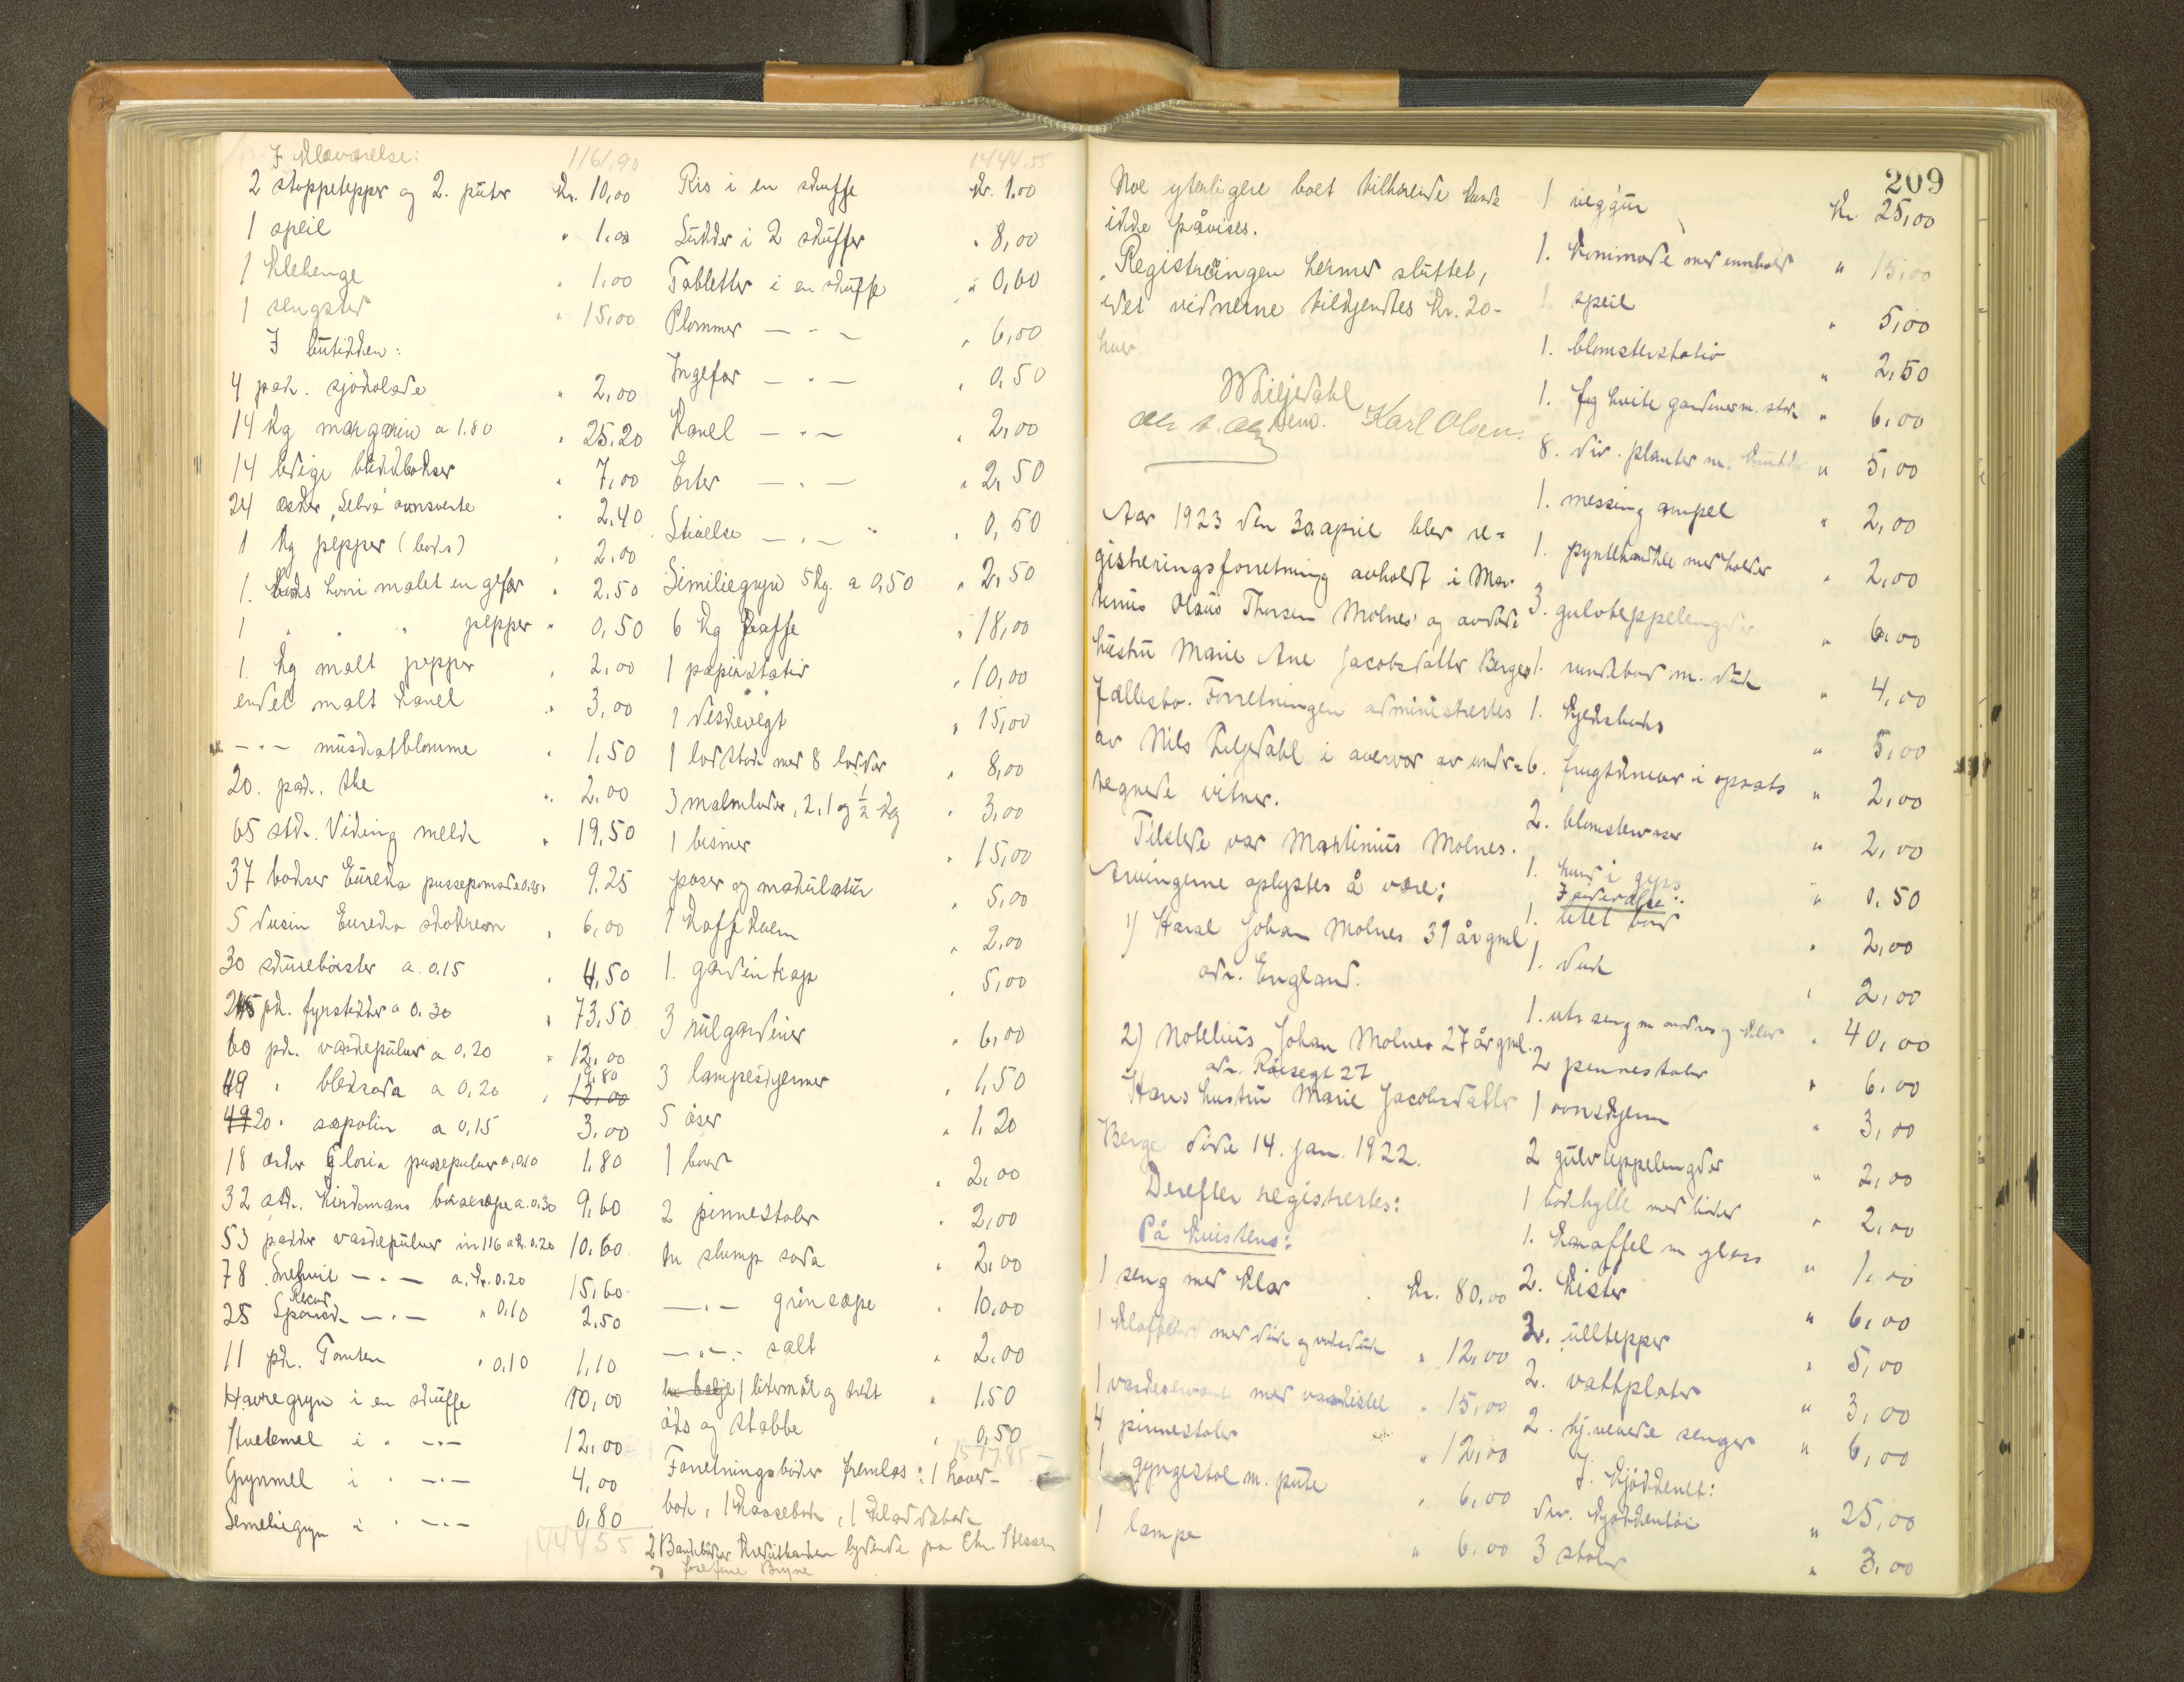 I Klæværelse: 1161,90
2 stoppetepper og 2. puter Kr. 10,00
1 speil " 1.00
1 Klehenge " 1,00
1 sengsted " 15,00
I butikken:
4 pak. sjokolade " 2,00
14 kg margarin a 1.80 " 25.20
14 ledige blikkbokser " 7,00
24 æsker "Sebra" ovnsverte " 2.40
1 kg pepper (boks) " 2,00
1. boks hvori malet en gefær " 2.50
1 " " pepper " 0,50
1. kg malt pepper " 2,00
endel malt kanel " 3,00
- " - muskatblomme " 1,50
20. pak. the " 2,00
65 stk. Viking melk " 19,50
37 bokser Eureka pussepomade 0,25 " 9,25
5 dusin Eureka skokrem " 6,00
30 skurebørster a. 0.15 " 4,50
245 pk. fyrstikker a 0.30 " 73,50
60 pk. vaskepulver a 0,20 " 12,00
49 " bleksoda a 0,20 " 9.80 12,00
49 20 " sapolin a 0,15 3,00
18 æsker Gloria pussepulver a 0,10 1,80
32 stk. Lindemans boraxsæpe a. 0.30 9,60
53 pakker vaskepulver nr 116 a kr. 0.20 10.60
78 Snehvit - " - a. kr. 0.20 15,60
25 Record - " - " 0.10 2,50
11 pk. Tomten " 0.10 1,10
Havregryn i en skuffe 10,00
Hvetemel i " - " - 12,00
Grynmel i " - " - 4,00
Semeliegryn i " - " - 0,80
144455
1444.55
Ris i en skuffe Kr. 1.00
Sukker i 2 skuffer " 8,00
Tabletter i en skuffe " 0,60
Plommer - " - " 6,00
Ingefær - " - " 0,50
Kanel - " - " 2,00
Erter - " - " 2,50
Stivelse - " - " 0,50
Similiegryn 5 kg. a 0,50 " 2,50
6 kg kaffe " 18,00
1 papirstativ " 10,00
1 diskevegt " 15,00
1 lodstok med 8 lodder " 8,00
3 malmlodd, 2, 1 og ½ kg " 3,00
1 bismer " 15,00
poser og makulatur " 5,00
1 Kaffekvern " 2,00
1. gardintrap " 5,00
3 rulgardiner " 6,00
3 lampeskjermer " 1,50
5 øser " 1,20
1 bord " 2,00
2 pinnestoler " 2,00
en slump soda " 2,00
- " - grønsæpe " 10,00
- " - salt " 2,00
1 litermål og trekt " 1.50
øks og stabbe " 0,50
157785
Forretningsbøker fremlas: 1 hoved-
bok, 1 Kassebok, 1 Kladdebok
2 Bankbøker lydende på Chr. Hessen
og Josefine Bryne
209
Noe yterligere boet tilhørende kunde
ikke påvises.
Registreringen hermed sluttet,
idet vidnerne tilkjendtes Kr. 20-
hver.
N Liljedahl
Karl Olsen.
Aar 1923 den 30. april blev re=
gistreringsforretning avholdt i Mar
tinus Olaus Thorsen Molnes og avdøde
hustru Marie Ane Jacobsdatter Berges
fællesbo. Forretningen administrertes
av Nils Liljedahl i overvær av under=
tegnede vitner.
Tilstede var Martinius Molnes.
Arvingerne oplystes å være:
1) Haral Johan Molnes 31 år gml
adr. England.
2) Notelius Johan Molnes 27 år gml.
adr. Råsegt 27
Hans hustru Marie Jacobsdatter
Berge døde 14. jan. 1922.
Derefter registrertes:
På Kvistens:
1 seng med Klær Kr. 80,00
1 klaffbord med duk og voksduk " 12,00
1 vaskeservant med vaskestel " 15,00
4 pinnestoler " 12,00
1 gyngestol m. pute " 6,00
1 lampe " 6.00
1 veggur Kr. 25,00
1. Kommode med innhold " 15,00
1. speil " 5,00
1. blomsterstativ " 2,50
1. fag hvite gardiner m. stok " 6,00
8. div. planter m. krukker " 5,00
1. messing ampel " 2,00
1. pyntehandkle med holder " 2,00
3. gulvteppelengder " 6,00
1. rundtbord m. duk " 4,00
1. Kjeksboks " 5,00
6. frugtkniver i opsats " 2,00
2. blomstervaser " 2,00
1. hund i gips " 0.50
I sideværelse:
1. litet bord " 2,00
1. duk " 2,00
1. utr. seng m madras og klær " 40,00
2 pinnestoler " 6.00
1 ovnskjerm " 3,00
2 gulvteppelengder " 2,00
1 bokhylle med bøker " 2,00
1. Karaffel m glass " 1,00
2. Kister " 6,00
2. ulltepper " 5,00
2. vattplater " 3,00
2. hj.vevede senger " 6,00
I. Kjøkkenet:
div. Kjøkkentøi " 25,00
3 stoler " 3,00